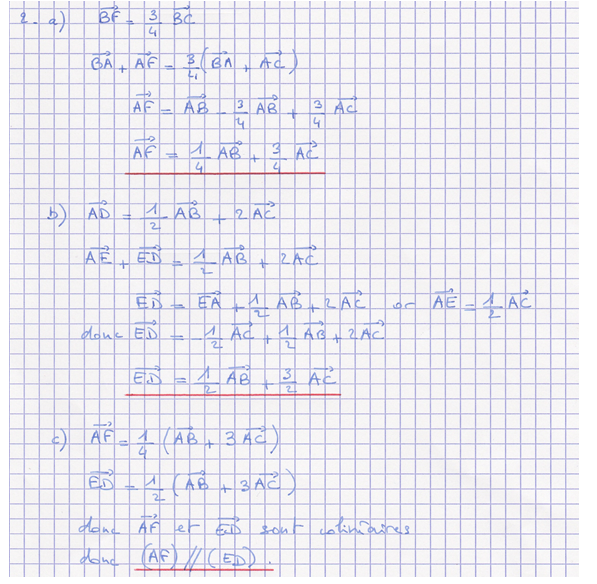 2. a) $\overrightarrow{BF} = \frac{3}{4} \overrightarrow{BC}$
$\overrightarrow{BA} + \overrightarrow{AF} = \frac{3}{4} (\overrightarrow{BA} + \overrightarrow{AC})$
$\overrightarrow{AF} = \overrightarrow{AB} - \frac{3}{4} \overrightarrow{AB} + \frac{3}{4} \overrightarrow{AC}$
$\overrightarrow{AF} = \frac{1}{4} \overrightarrow{AB} + \frac{3}{4} \overrightarrow{AC}$
b) $\overrightarrow{AD} = \frac{1}{2} \overrightarrow{AB} + 2 \overrightarrow{AC}$
$\overrightarrow{AE} + \overrightarrow{ED} = \frac{1}{2} \overrightarrow{AB} + 2 \overrightarrow{AC}$
$\overrightarrow{ED} = \overrightarrow{EA} + \frac{1}{2} \overrightarrow{AB} + 2 \overrightarrow{AC}$ or $\overrightarrow{AE} = \frac{1}{2} \overrightarrow{AC}$
donc $\overrightarrow{ED} = -\frac{1}{2} \overrightarrow{AC} + \frac{1}{2} \overrightarrow{AB} + 2 \overrightarrow{AC}$
$\overrightarrow{ED} = \frac{1}{2} \overrightarrow{AB} + \frac{3}{2} \overrightarrow{AC}$
c) $\overrightarrow{AF} = \frac{1}{4} (\overrightarrow{AB} + 3 \overrightarrow{AC})$
$\overrightarrow{ED} = \frac{1}{2} (\overrightarrow{AB} + 3 \overrightarrow{AC})$
donc $\overrightarrow{AF}$ et $\overrightarrow{ED}$ sont colinéaires
donc (AF) // (ED).